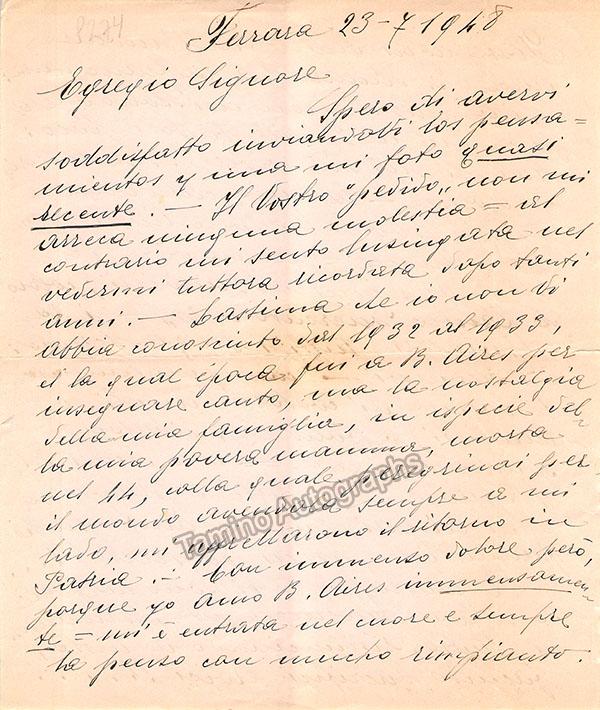 8274
Ferrara 23-7 1948
Egregio Signore
Spero di avervi
soddisfatto inviandovi los pensa=
mientos y una mi foto quasi
recente. — Il Vostro "pedido" non mi
arreca ninguna molestia = al
contrario mi sento lusingata nel
vedermi tuttora ricordata dopo tanti
anni. — Lastima che io non Vi
abbia conosciuto dal 1932 al 1933,
a la qual época fui a B. Aires per
insegnare canto, ma la nostalgia
della mia famiglia, in ispecie del=
la mia povera mamma, morta
nel 44, colla quale peregrinai per
il mondo avendola sempre a mi
lado, mi affrettarono il ritorno in
Patria. — Con immenso dolore però,
porque yo amo B. Aires immensamen
te = mi è entrata nel cuore e sempre
la penso con mucho rimpianto.
Tamino Autographs